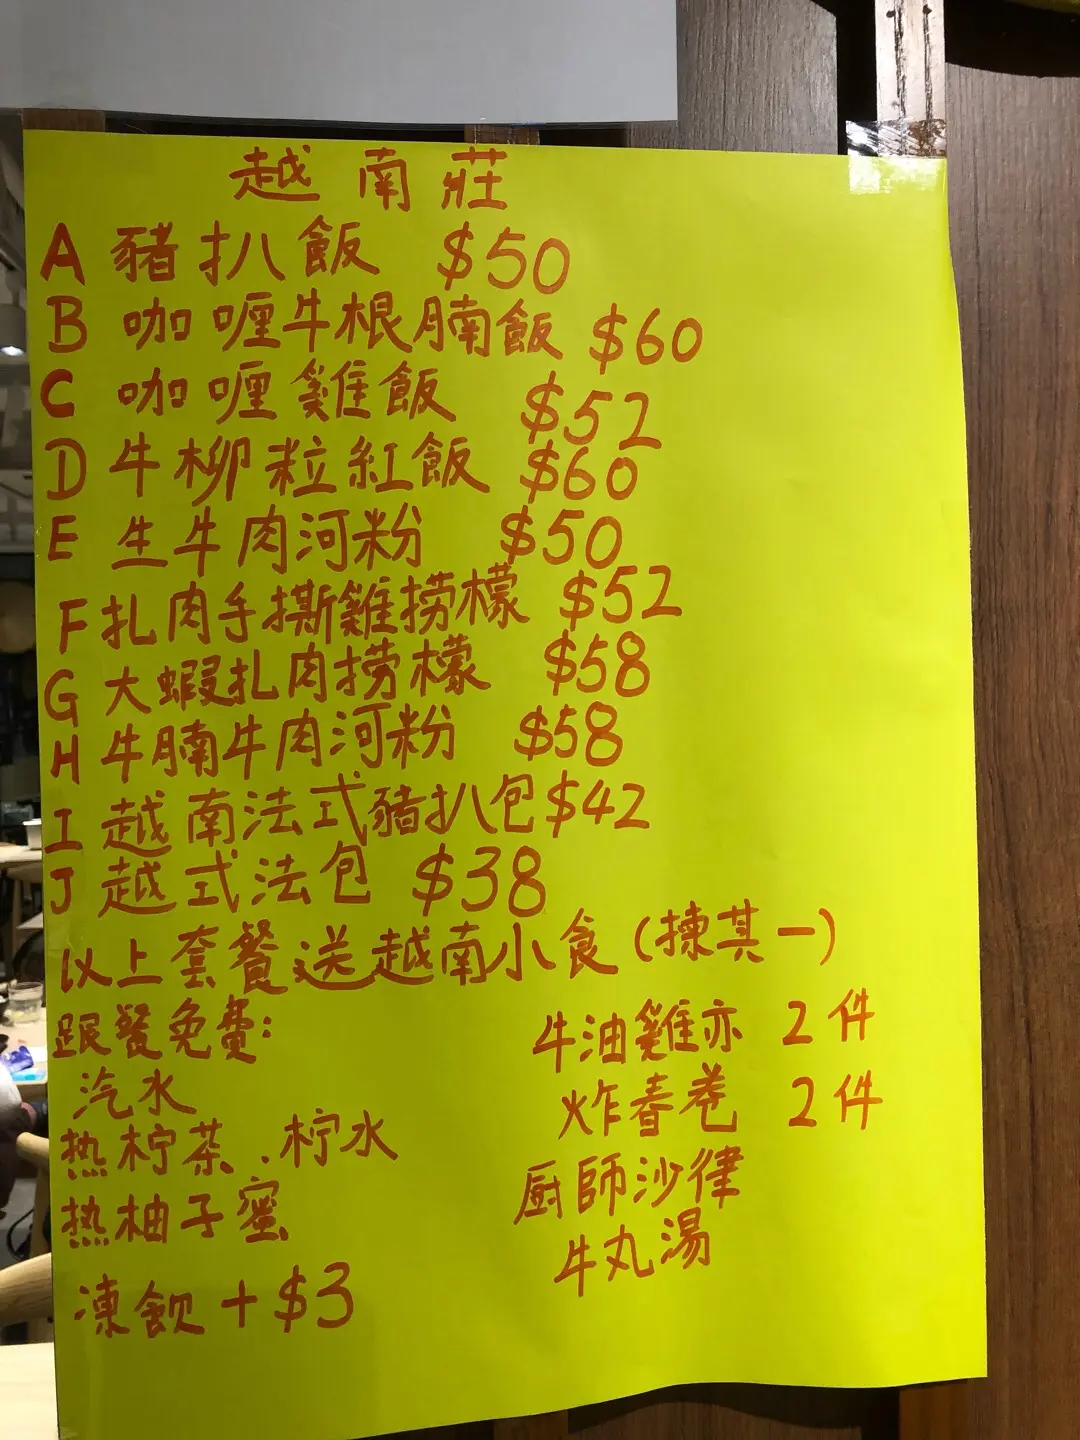 越南莊
A 豬扒飯 $50
B 咖喱牛根腩飯 $60
C 咖喱雞飯 $52
D 牛柳粒紅飯 $60
E 生牛肉河粉 $50
F 扎肉手撕雞捞檬 $52
G 大蝦扎肉捞檬 $58
H 牛腩牛肉河粉 $58
I 越南法式豬扒包 $42
J 越式法包 $38
以上套餐送越南小食(揀其一)
跟餐免費:
汽水
热柠茶.柠水
热柚子蜜
凍飲+$3
牛油雞亦 2件
炸春卷 2件
厨師沙律
牛丸湯